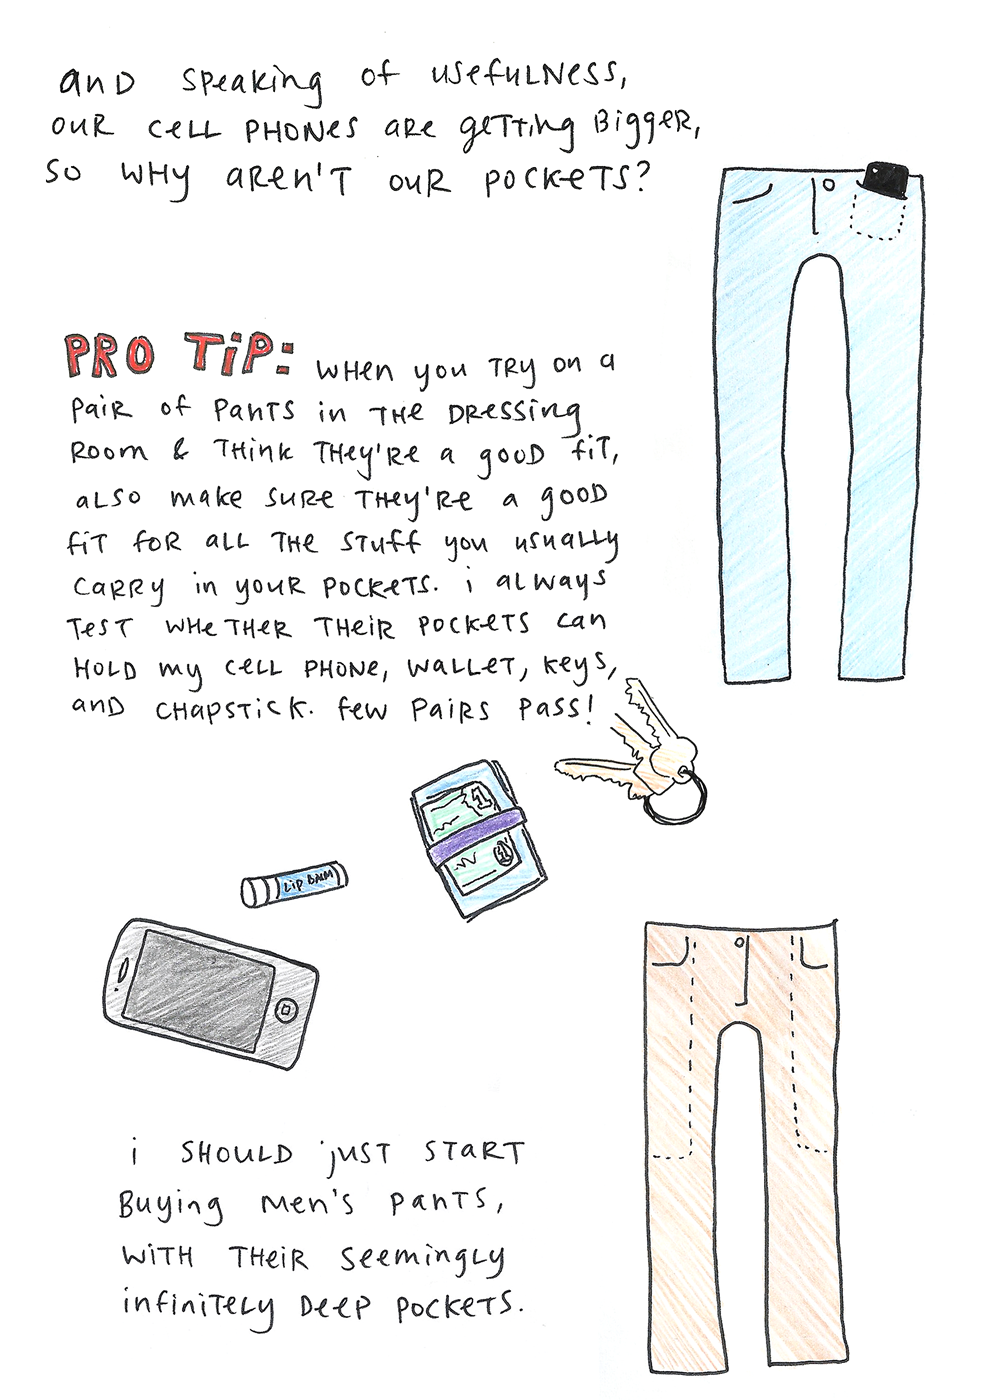 and speaking of usefulness,
our cell phones are getting bigger,
so why aren't our pockets?
PRO TIP: when you try on a
pair of pants in the dressing
room & think they're a good fit,
also make sure they're a good
fit for all the stuff you usually
carry in your pockets. i always
test whether their pockets can
hold my cell phone, wallet, keys,
and chapstick. few pairs pass!
1
1
LIP BALM
i should just start
buying men's pants,
with their seemingly
infinitely deep pockets.